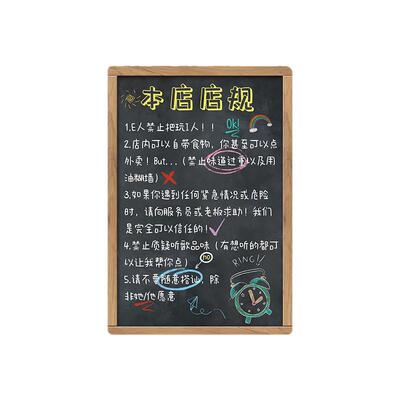 本店店规
1.E人禁止把玩I人！！
OK!
2.店内可以自带食物，你甚至可以点
外卖！But...（禁止味道过重以及用
油糊墙）
3.如果你遇到任何紧急情况或危险
时，请向服务员或老板求助！我们
是完全可以信任的！
4.禁止质疑听歌品味（有想听的都可
以让我帮你点）
no
RING!!
5.请不要随意搭讪，除
非她/他愿意